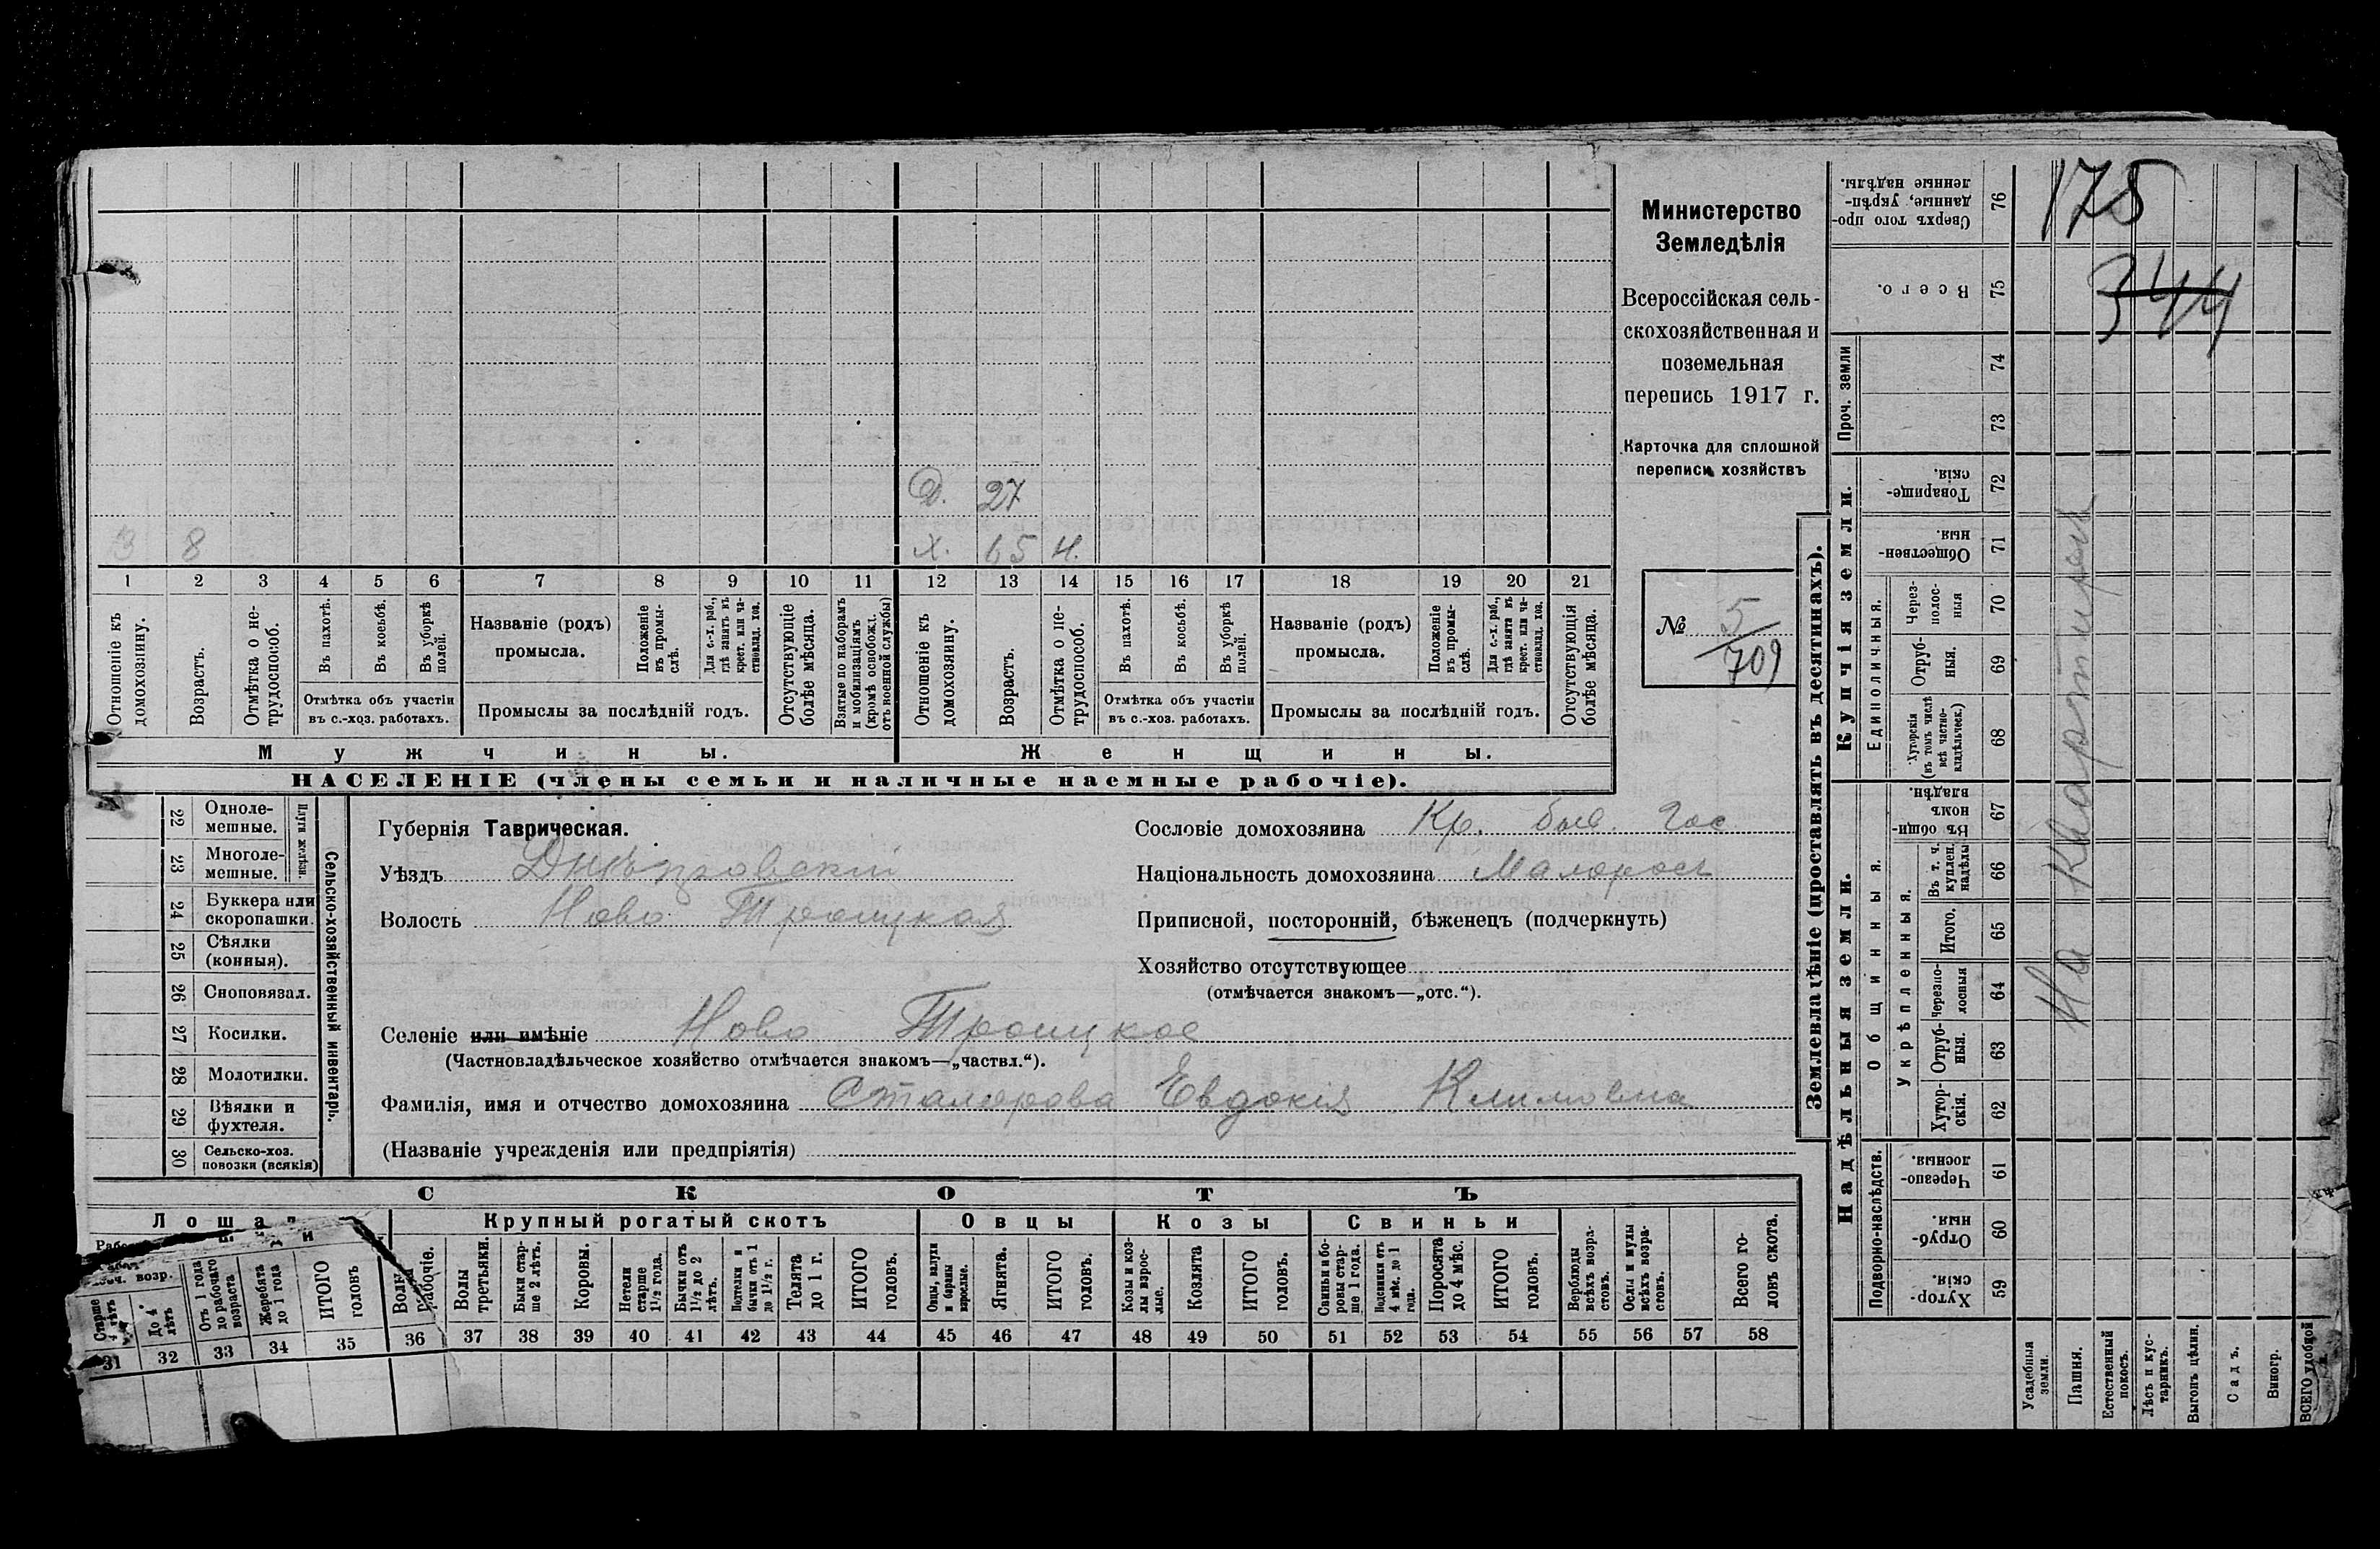 Министерство
Земледѣлія
Всероссійская сель-
скохозяйственная и
поземельная
перепись 1917 г.
Карточка для сплошной
переписи хозяйствъ
№ 5/709
Д. 27
З 8 Х. 65 Н.
1 2 3 4 5 6 7 8 9 10 11 12 13 14 15 16 17 18 19 20 21
Отношеніе къ домохозяину.
Возрастъ.
Отмѣтка о не-трудоспособ.
Въ пахотѣ.
Въ косьбѣ.
Въ уборкѣ полей.
Отмѣтка объ участіи въ с.-хоз. работахъ.
Названіе (родъ) промысла.
Положеніе въ промы-слѣ.
Для с.-х. раб., гдѣ занятъ въ крест. или ча-стновлад. хоз.
Промыслы за послѣдній годъ.
Отсутствующіе болѣе мѣсяца.
Взятые по наборамъ и мобилизаціямъ (кромѣ освобожд. отъ военной службы)
Отношеніе къ домохозяину.
Возрастъ.
Отмѣтка о не-трудоспособ.
Въ пахотѣ.
Въ косьбѣ.
Въ уборкѣ полей.
Отмѣтка объ участіи въ с.-хоз. работахъ.
Названіе (родъ) промысла.
Положеніе въ промы-слѣ.
Для с.-х. раб., гдѣ занята въ крест. или ча-стновлад. хоз.
Промыслы за послѣдній годъ.
Отсутствующія болѣе мѣсяца.
Мужчины. Женщины.
НАСЕЛЕНІЕ (члены семьи и наличные наемные рабочіе).
22 Одноле-мешные.
23 Многоле-мешные.
Плуги желѣзн.
24 Буккера или скоропашки.
25 Сѣялки (конныя).
26 Сноповязал.
27 Косилки.
28 Молотилки.
29 Вѣялки и фухтеля.
30 Сельско-хоз. повозки (всякія)
Сельско-хозяйственный инвентарь.
Губернія Таврическая.
Уѣздъ Днѣпровскій
Волость Ново Троицкая
Сословіе домохозяина Кр. быв. Гос
Національность домохозяина Малоросъ
Приписной, посторонній, бѣженецъ (подчеркнуть)
Хозяйство отсутствующее
(отмѣчается знакомъ—„отс.“).
Селеніе или имѣніе Ново Троицкое
(Частновладѣльческое хозяйство отмѣчается знакомъ—„частвл.“).
Фамилія, имя и отчество домохозяина Столярова Евдокія Климовна
(Названіе учрежденія или предпріятія)
СКОТЪ
Лошади Крупный рогатый скотъ Овцы Козы Свиньи
Старше 4 лѣтъ
До 4 лѣтъ
Отъ 1 года до рабочаго возраста
Жеребята до 1 года
ИТОГО головъ
Волы рабочіе.
Волы третьяки.
Быки стар-ше 2 лѣтъ.
Коровы.
Нетели старше 1½ года.
Бычки отъ 1½ до 2 лѣтъ.
Подтелки и бычки отъ 1 до 1½ г.
Телята до 1 г.
ИТОГО головъ.
Овцы, валухи и бараны взрослые.
Ягнята.
ИТОГО головъ.
Козы и коз-лы взрос-лые.
Козлята
ИТОГО головъ.
Свиньи и бо-ровы стар-ше 1 года.
Подсвинки отъ 4 мѣс. до 1 года.
Поросята до 4 мѣс.
ИТОГО головъ.
Верблюды всѣхъ возра-стовъ.
Ослы и мулы всѣхъ возра-стовъ.
Всего го-ловъ скота.
31 32 33 34 35 36 37 38 39 40 41 42 43 44 45 46 47 48 49 50 51 52 53 54 55 56 57 58
Землевладѣніе (проставлять въ десятинахъ).
Надѣльныя земли. Купчія земли. Проч. земли
Подворно-наслѣдств. Общинныя. Единоличныя.
Укрѣпленныя.
59 Хутор-скія.
60 Отруб-ныя.
61 Черезпо-лосныя.
62 Хутор-скія.
63 Отруб-ныя.
64 Черезпо-лосныя
65 Итого.
66 Въ т. ч. куплен. надѣлы
67 Въ общин-номъ владѣн.
68 Хуторскія (въ томъ числѣ всѣ частно-владѣльческ.)
69 Отруб-ныя.
70 Через-полос-ныя
71 Обществен-ныя.
72 Товарище-скія.
73
74
75 Всего.
76 Сверхъ того про-данные, укрѣп-ленные надѣлы.
Усадебныя земли.
Пашня.
Естественный покосъ.
Лѣсъ и кус-тарникъ.
Выгонъ цѣлин.
Садъ.
Виногр.
ВСЕГО удобной
175
344
На квартирѣ